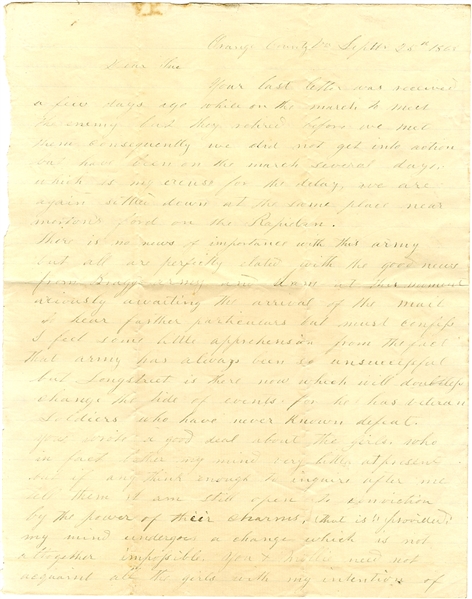 Orange County Va Sept 25th 186
Dear Sue
Your last letter was received
a few days ago while on the march to meet
the enemy but they retired before we met
them consequently we did not get into action
but have been on the march several days
which is my excuse for the delay, we are
again settled down at the same place near
mortons ford on the Rapidan.
There is no news of importance with this army
but all are perfectly elated with the good news
from Braggs army and I am at this moment
anxiously awaiting the arrival of the mail
to hear farther particulars but must confess
I feel some little apprehension from the fact
that army has always been so unsuccessful
but Longstreet is there now which will doubtless
change the tide of events for he has veteran
soldiers who have never known defeat.
You wrote a good deal about the girls who
in fact bother my mind very little at present
and if any think enough to inquire after me
tell them I am still open to conviction
by the power of their charms, that is "provided"
my mind undergoes a change which is not
altogether impossible You & Mollie need not
acquaint all the girls with my intentions of